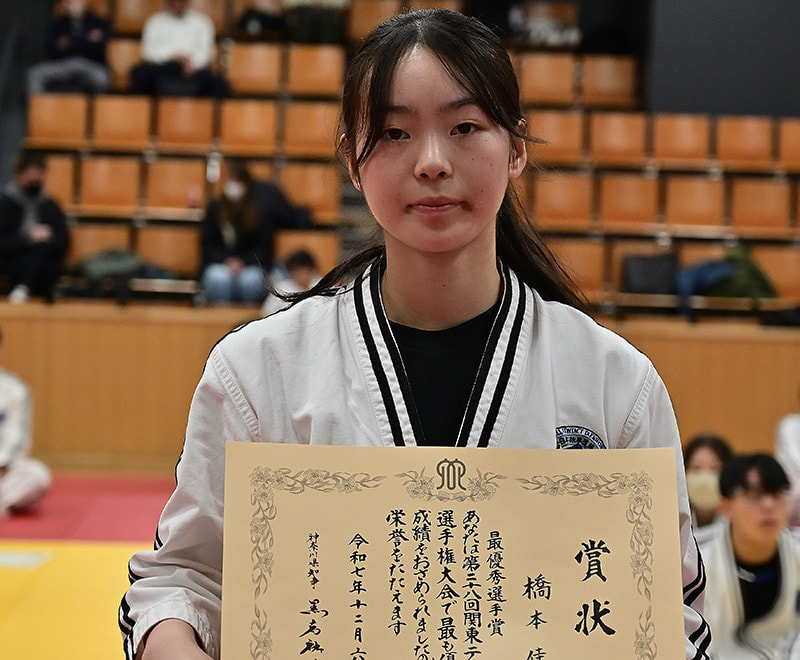 賞状
橋本佳
最優秀選手賞
あなたは第二八回関東テ
選手権大会で最も優
成績をおさめられましたの
栄誉をたたえます
令和七年十二月六
神奈川県知事 黒岩祐